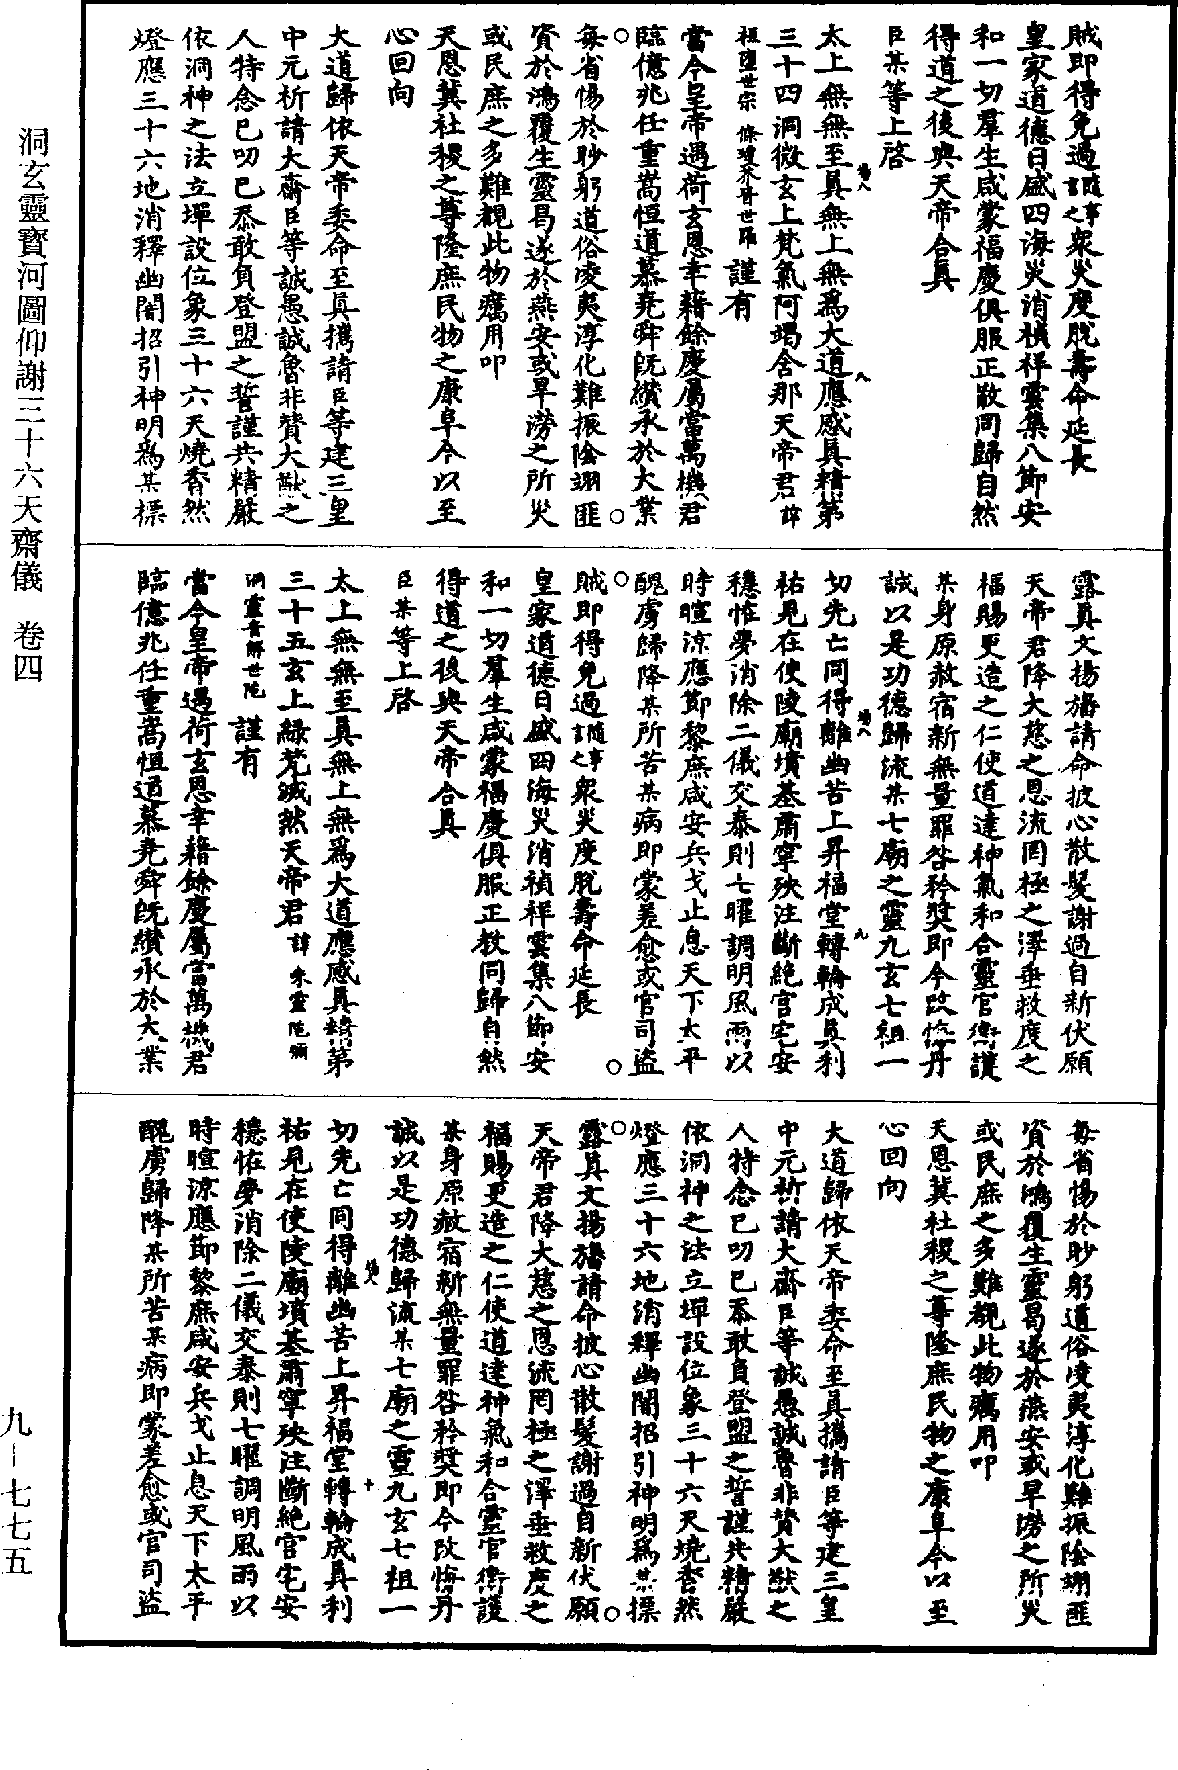 洞玄靈寶河圖仰謝三十六天齋儀　卷四
九—七七五
賊即得免過隨事言之衆災度脫壽命延長
皇家道德日盛四海災消禎祥雲集八節安
和一切羣生咸蒙福慶俱服正教同歸自然
得道之後與天帝合真
臣某等上啓
太上無無至真無上無爲大道應感真精第
三十四洞微玄上梵氣阿竭含那天帝君諱
謹有
當今皇帝遇荷玄恩幸藉餘慶屬當萬機君
臨億兆任重嵩恒道慕堯舜旣纘承於大業
每省惕於眇躬道俗凌夷淳化難振陰翊匪
資於鴻覆生靈曷遂於燕安或旱澇之所災
或民庶之多難覩此物癘用叩
天恩冀社稷之尊隆庶民物之康阜今以至
心回向
大道歸依天帝委命至真攜請臣等建三皇
中元祈請大齋臣等誠愚誠魯非贊大猷之
人特念已叨已忝敢負登盟之誓謹共精嚴
依洞神之法立墠設位象三十六天燒香然
燈應三十六地消釋幽闇招引神明爲某標
露真文揚旛請命披心散髮謝過自新伏願
天帝君降大慈之恩流罔極之澤垂救度之
福賜更造之仁使道達神氣和合靈官衛護
某身原赦宿新無量罪咎矜獎即今改悔丹
誠以是功德歸流某七廟之靈九玄七祖一
切先亡同得離幽苦上昇福堂轉輪成真利
祐見在使陵廟墳基肅寧殃注斷絕宫宅安
穩怪夢消除二儀交泰則七曜調明風雨以
時暄涼應節黎庶咸安兵戈止息天下太平
醜虜歸降某所苦某病即蒙差愈或官司盜
賊即得免過隨事言之衆災度脫壽命延長
皇家道德日盛四海災消禎祥雲集八節安
和一切羣生咸蒙福慶俱服正教同歸自然
得道之後與天帝合真
臣某等上啓
太上無無至真無上無爲大道應感真精第
三十五玄上綠梵滅然天帝君諱
謹有
當今皇帝遇荷玄恩幸藉餘慶屬當萬機君
臨億兆任重嵩恒道慕堯舜旣纘承於大業
每省惕於眇躬道俗凌夷淳化難振陰翊匪
資於鴻覆生靈曷遂於燕安或旱澇之所災
或民庶之多難覩此物癘用叩
天恩冀社稷之尊隆庶民物之康阜今以至
心回向
大道歸依天帝委命至真攜請臣等建三皇
中元祈請大齋臣等誠愚誠魯非贊大猷之
人特念已叨已忝敢負登盟之誓謹共精嚴
依洞神之法立墠設位象三十六天燒香然
燈應三十六地消釋幽闇招引神明爲某標
露真文揚旛請命披心散髮謝過自新伏願
天帝君降大慈之恩流罔極之澤垂救度之
福賜更造之仁使道達神氣和合靈官衛護
某身原赦宿新無量罪咎矜獎即今改悔丹
誠以是功德歸流某七廟之靈九玄七祖一
切先亡同得離幽苦上昇福堂轉輪成真利
祐見在使陵廟墳基肅寧殃注斷絕宫宅安
穩怪夢消除二儀交泰則七曜調明風雨以
時暄涼應節黎庶咸安兵戈止息天下太平
醜虜歸降某所苦某病即蒙差愈或官司盜